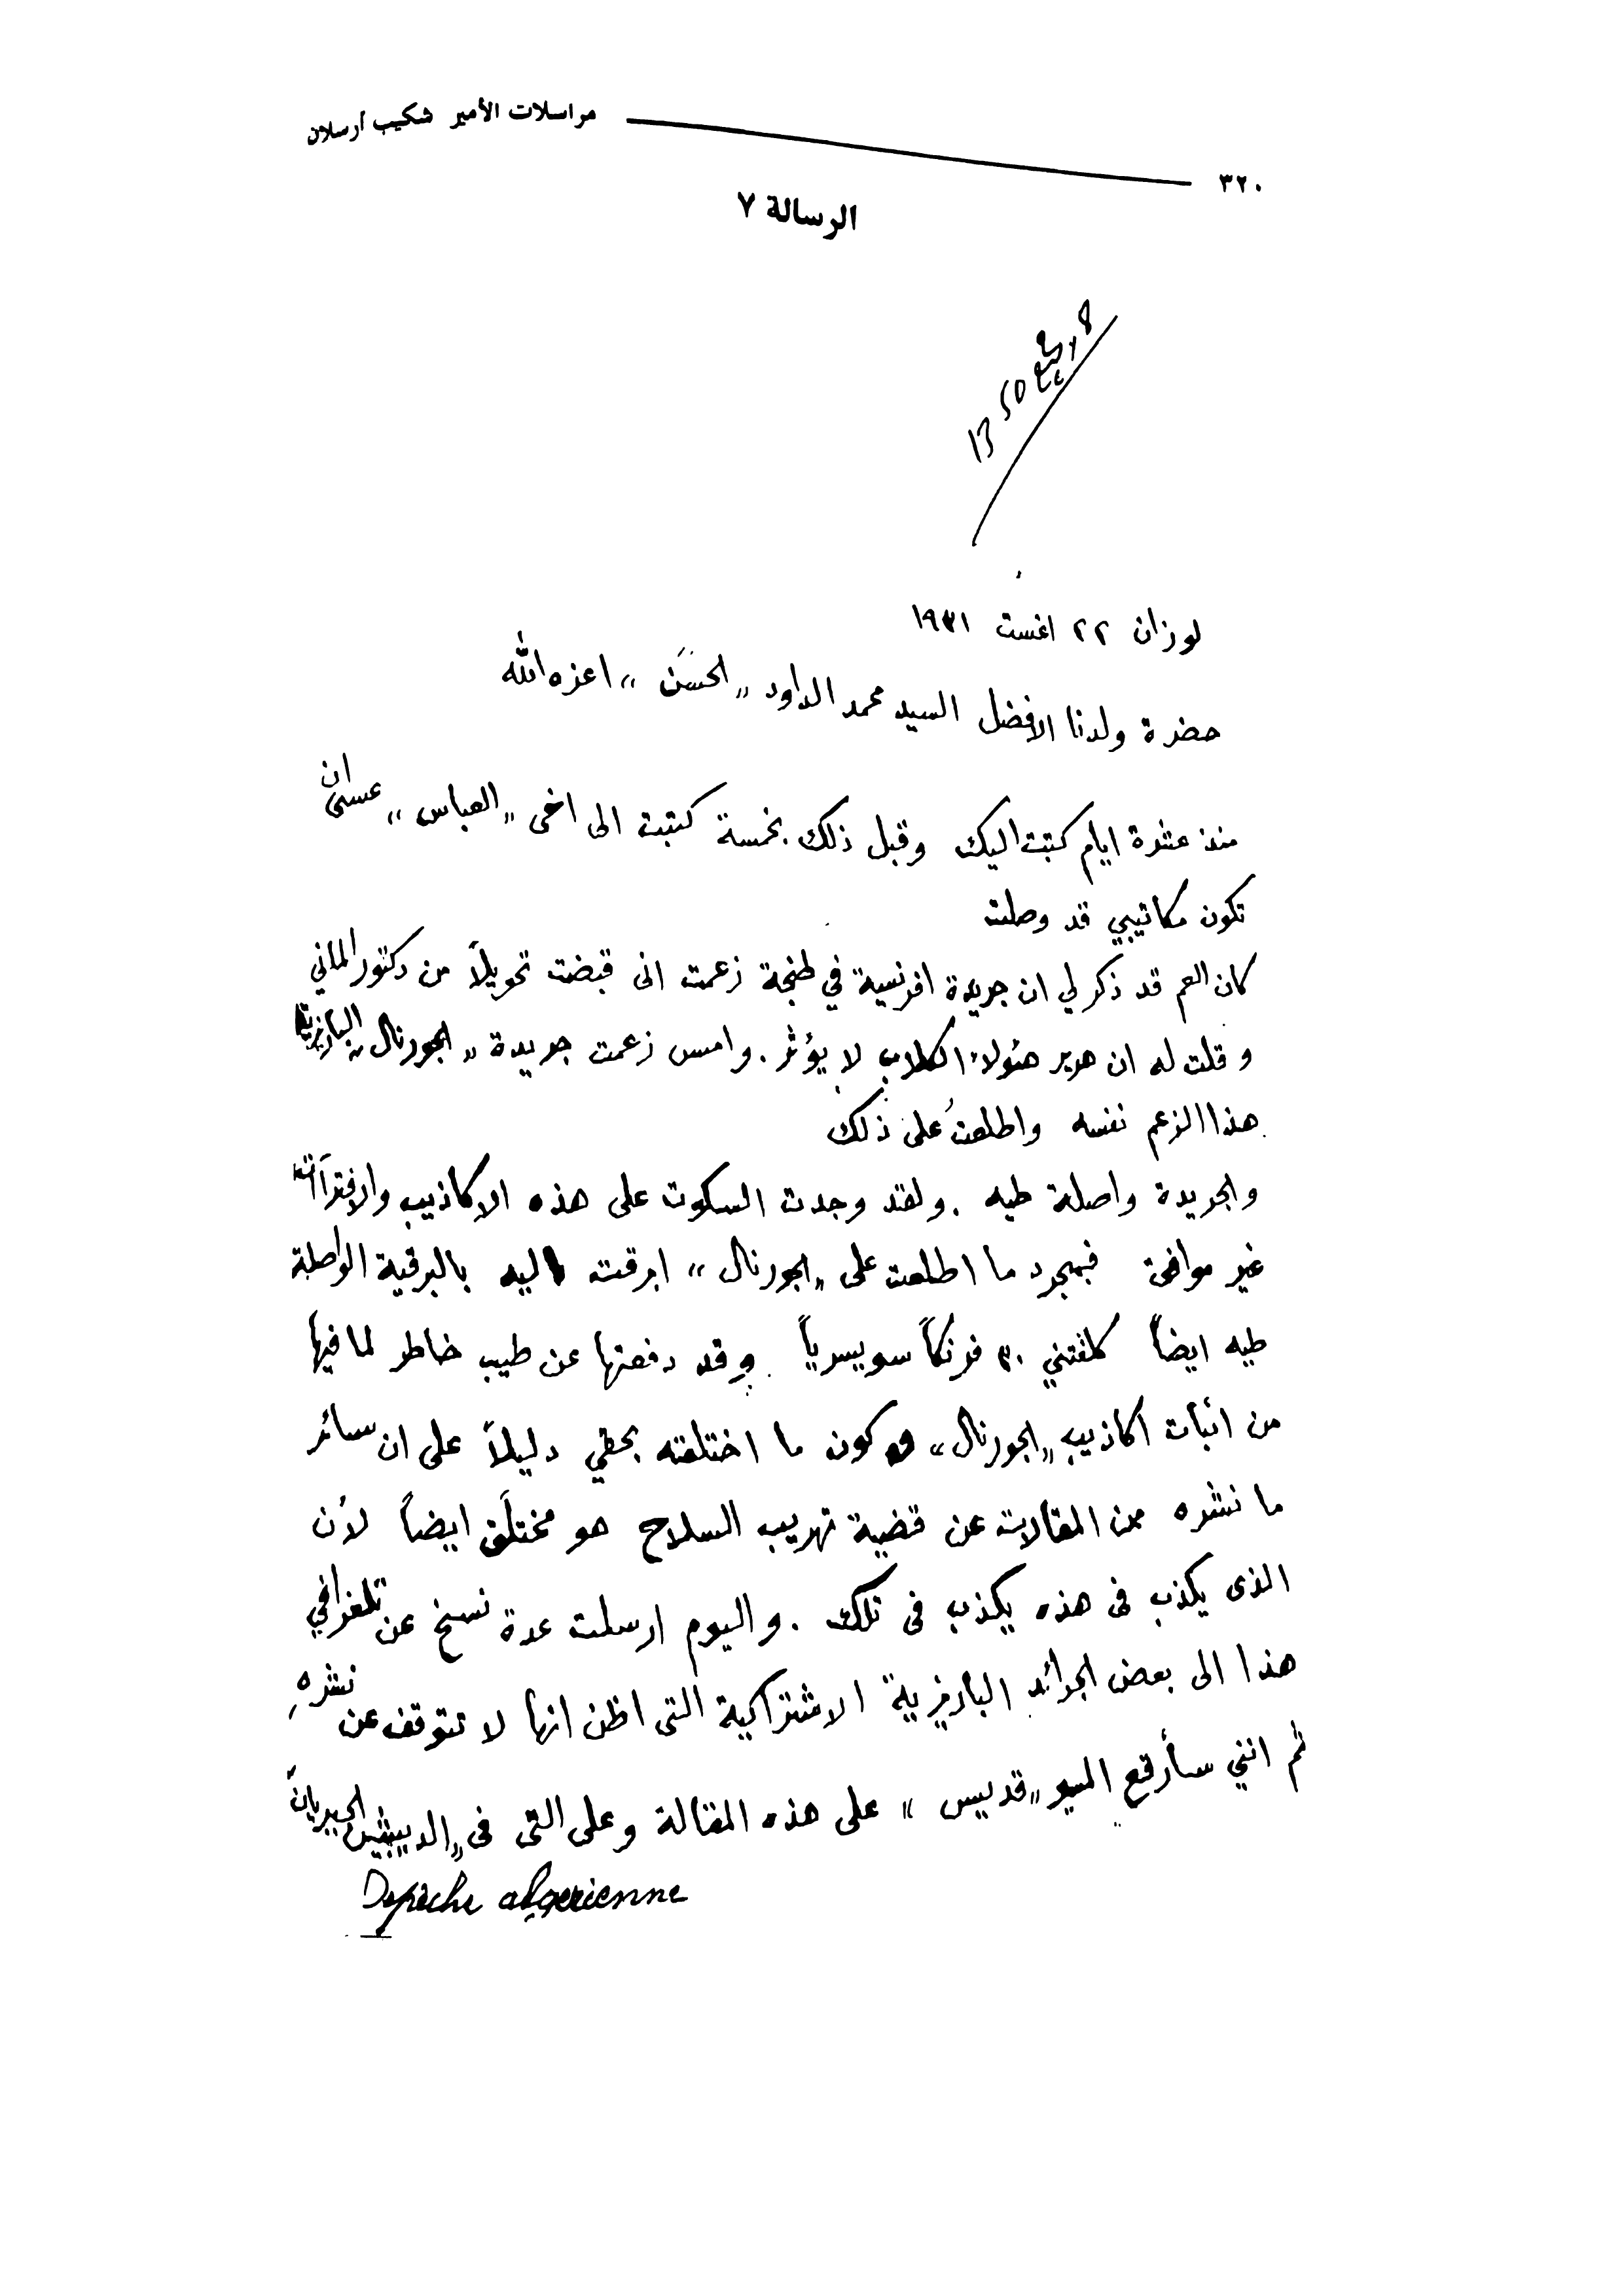 مراسلات الأمير شكيب أرسلان
٣٢٠
الرسالة ٧
8 ربيع 2 1350
لوزان ٢٢ اغست ١٩٣١
حضرة ولدنا الافضل السيد محمد الداود «الحسَن» اعزه الله
منذ عشرة ايام كتبت اليك وقبل ذلك بخمسة كتبت الى اخى «العباس» عسى ان
تكون مكاتيبي قد وصلت
كان العم قد ذكر لي ان جريدة افرنسية في طنجة زعمت انى قبضت تحويلاً من دكتور الماني
و قلت له ان هرير هئولاء الكلاب لا يؤثر. وامس زعمت جريدة «الجورنال» البارزية
هذا الزعم نفسه واطلعتُ على ذلك
والجريدة واصلة طيه . ولقد وجدت السكوت على هذه الاكاذيب والافترآت
غير موافق فبمجرد ما اطلعت على «الجورنال» ابرقت اليه بالبرقية الواصلة
طيه ايضاً كلفتني ٣٠ فرنكاً سويسرياً وقد دفعتها عن طيب خاطر لما فيها
من اثبات اكاذيب «الجورنال» وكون ما اختلقته بحقي دليلاً على ان سائر
ما نشره من المقالات عن قضية تهريب السلاح هو مختلَق ايضاً لأن
الذى يكذب فى هذه يكذب فى تلك . واليوم ارسلت عدة نسخ عن تلغرافي
هذا الى بعض الجرائد البارزية الاشتراكية التى اظن انها لا تتوقف عن نشره
ثم انني سأرقع المسيو «قديس» على هذه المقالة وعلى التى فى «الديبيش الجيريان»
Dépêche algérienne